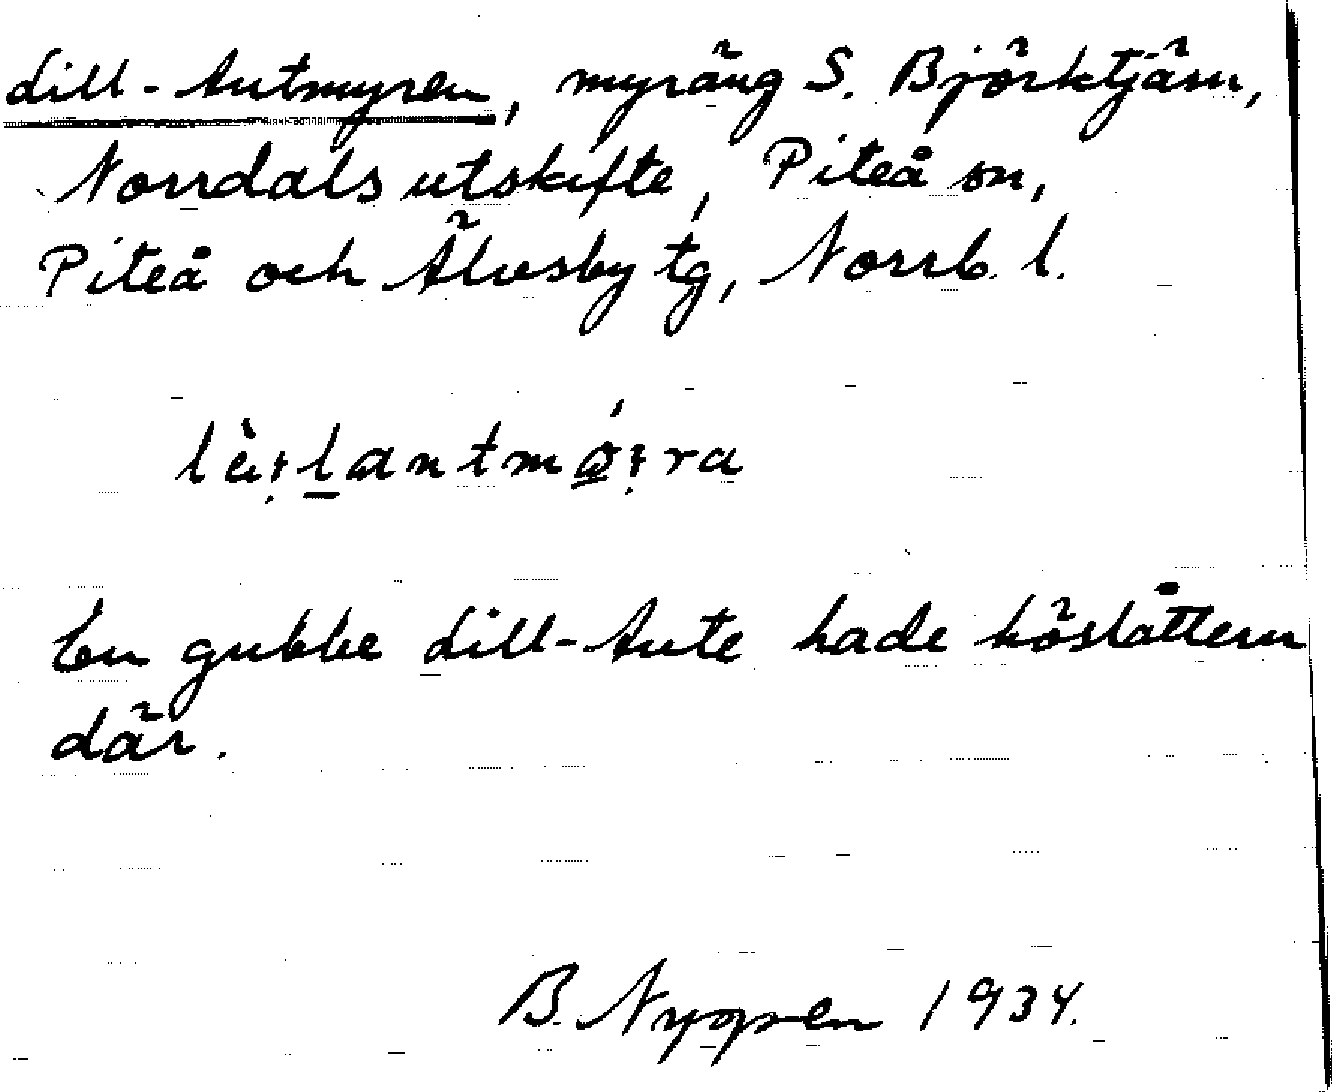 Lill-Antmyren, myräng S. Björktjärn,
Norrdals utskifte, Piteå sn,
Piteå och Älvsby tg, Norrb. l.
En gubbe Lill-Ante hade höslåttern
där.
B. Nygren 1934.